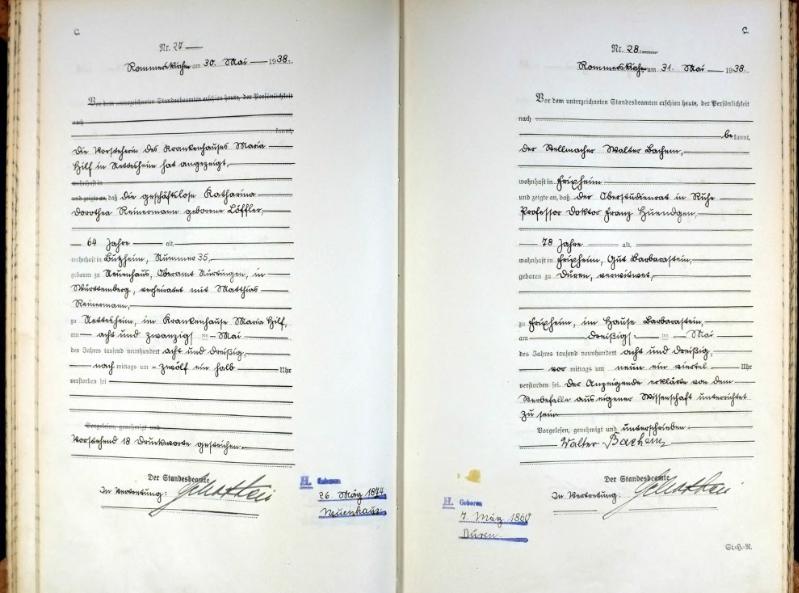 C.
Nr. 27
Rommerskirchen am 30. Mai 1938.
Vor dem unterzeichneten Standesbeamten erschien heute, der Persönlichkeit
nach
kannt,
Die Vorsteherin des Krankenhauses Maria
Hilf in Nettesheim hat angezeigt,
wohnhaft in
und zeigte an, daß die geschäftslose Katharina
Dorothea Reinermann geborene Löffler,
64 Jahre alt,
wohnhaft in Butzheim, Nummer 35,
geboren zu Neuenhaus, Oberamt Nürtingen, in
Württemberg, verheiratet mit Matthias
Reinermann,
zu Nettesheim, im Krankenhause Maria Hilf,
am acht und zwanzigsten Mai
des Jahres tausend neunhundert acht und dreißig,
nach mittags um zwölf ein halb Uhr
verstorben sei
Vorgelesen, genehmigt und
Vorstehend 18 Druckworte gestrichen.
Der Standesbeamte
In Vertretung:
H. Geboren
26. März 1874
Neuenhaus
C.
Nr. 28.
Rommerskirchen am 31. Mai 1938.
Vor dem unterzeichneten Standesbeamten erschien heute, der Persönlichkeit
nach
be kannt,
der Stellmacher Walter Bachem,
wohnhaft in Frixheim
und zeigte an, daß der Oberstudienrat in Ruhe
Professor Doktor Franz Huendgen,
78 Jahre alt,
wohnhaft in Frixheim, Gut Barbarastein,
geboren zu Düren, verwitwet,
zu Frixheim, im Hause Barbarastein,
am dreißigsten Mai
des Jahres tausend neunhundert acht und dreißig,
vor mittags um neun ein viertel Uhr
verstorben sei. Der Anzeigende erklärte von dem
Sterbefalle aus eigener Wissenschaft unterrichtet
zu sein
Vorgelesen, genehmigt und unterschrieben
Walter Bachem
Der Standesbeamte
In Vertretung:
H. Geboren
7. März 1860
Düren
St.-H.-R.